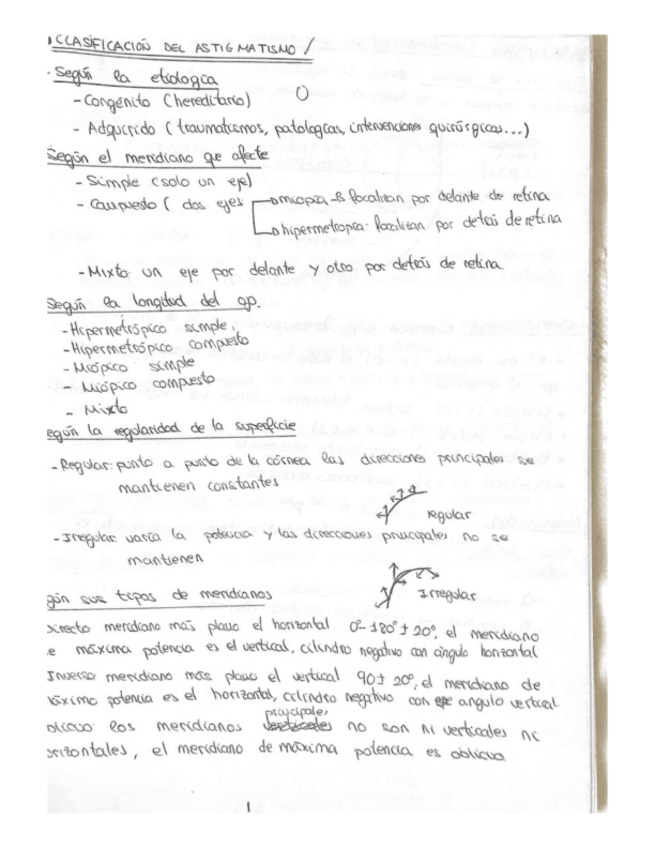 CLASIFICACIÓN DEL ASTIGMATISMO /
· Según la etiología
- Congénito (hereditario)
- Adquirido (traumatismos, patologías, intervenciones quirúrgicas...)
Según el meridiano que afecte
- Simple (solo un eje)
- Compuesto ( dos ejes
miopía → focalizan por delante de retina
hipermetropía: focalizan por detrás de retina
- Mixto un eje por delante y otro por detrás de retina
Según la longitud del ojo.
- Hipermetrópico simple.
- Hipermetrópico compuesto
- Miópico simple
- Miópico compuesto
- Mixto
egún la regularidad de la superficie
- Regular: punto a punto de la córnea las direcciones principales se
mantienen constantes
regular
- Irregular varía la potencia y las direcciones principales no se
mantienen
Irregular
gún sus tipos de meridianos
irecto meridiano más plano el horizontal 0º-180º ± 20º, el meridiano
e máxima potencia es el vertical, cilindro negativo con ángulo horizontal
Inverso meridiano más plano el vertical 90 ± 20º, el meridiano de
áximo potencia es el horizontal, cilindro negativo con eje angulo vertical
principales
oblicuo los meridianos verticales no son ni verticales ni
orizontales, el meridiano de máxima potencia es oblicuo.
1